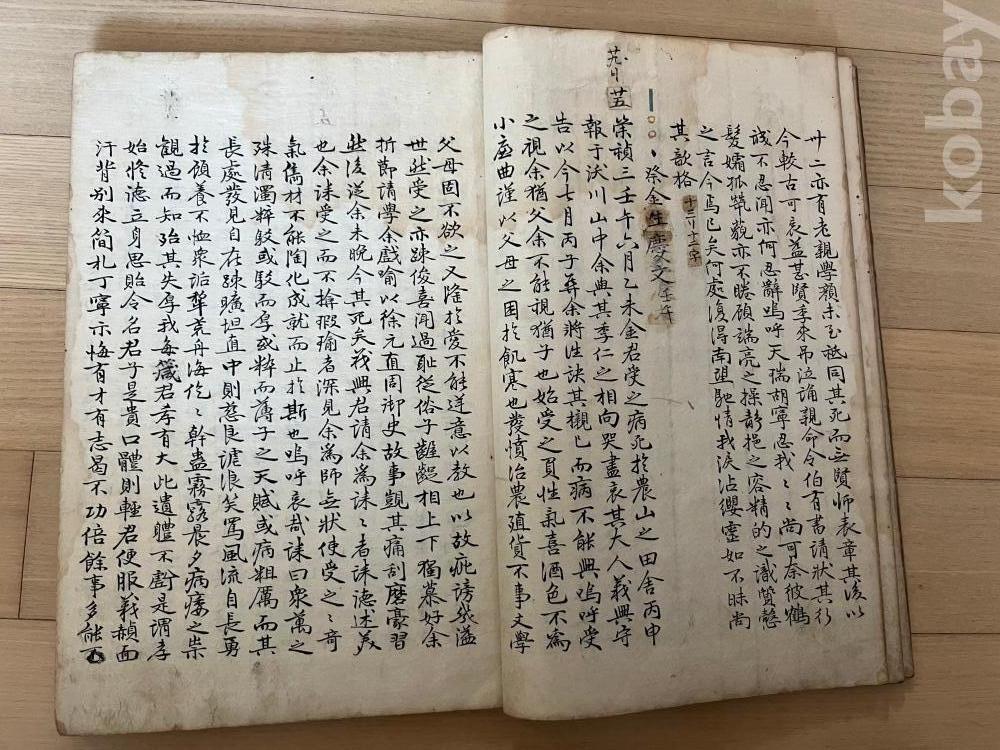 卅二亦有老親學頦未至祗同其死而無賢師表章其後以
今較古可哀益甚賢季來吊泣誦親命令伯有書請狀其行
誠不忍聞亦何忍辭嗚呼天瑞胡寧忍我〻尚可奈彼鶴
髮孀孤煢藐亦不睠顧端亮之操靜挹之容精的之識贊懿
之言今焉已矣何處復得南望馳情我淚沾纓靈如不昧尚
其歆格
十二行十二字
祭金生慶文 壬午
崇禎三壬午六月乙未金君受之病死於農山之田舍丙申
報于沃川山中余與其季仁之相向哭盡哀其大人義興守
告以今七月丙子葬余將往訣其櫬已而病不能興嗚呼受
之視余猶父余不能視猶子也始受之負性氣喜酒色不爲
小廉曲謹以父母之困於飢寒也發憤治農殖貨不事文學
父母固不欲之又隆於愛不能迷意以教也以故疵謗幾溢
世然受之亦疎俊喜聞過恥從俗子齷齪相上下獨慕好余
折節請學余戲喻以徐元直周御史故事覬其痛刮磨豪習
些後送余未晚今其死矣義興君請余爲誄〻者誄德述美
也余誄受之而不揜瑕瑜者深見余爲師無狀使受之〻奇
氣儁材不能陶化成就而止於斯也嗚呼哀哉誄曰衆萬之
殊淸濁粹駁或駁而厚或粹而薄子之天賦或病粗厲而其
長處發見自在疎曠坦直中則慈良謔浪笑罵風流自長勇
於顧養不恤衆詬犂荒舟海仡〻幹蠱霧露晨夕病瘻之祟
觀過而知殆其失厚我每箴君孝有大此遺體不戲是謂孝
始修德立身思貽令名君子是貴口體則輕君便服義赬面
汗背別來簡札丁寧亦悔有才有志曷不功倍餘事多能